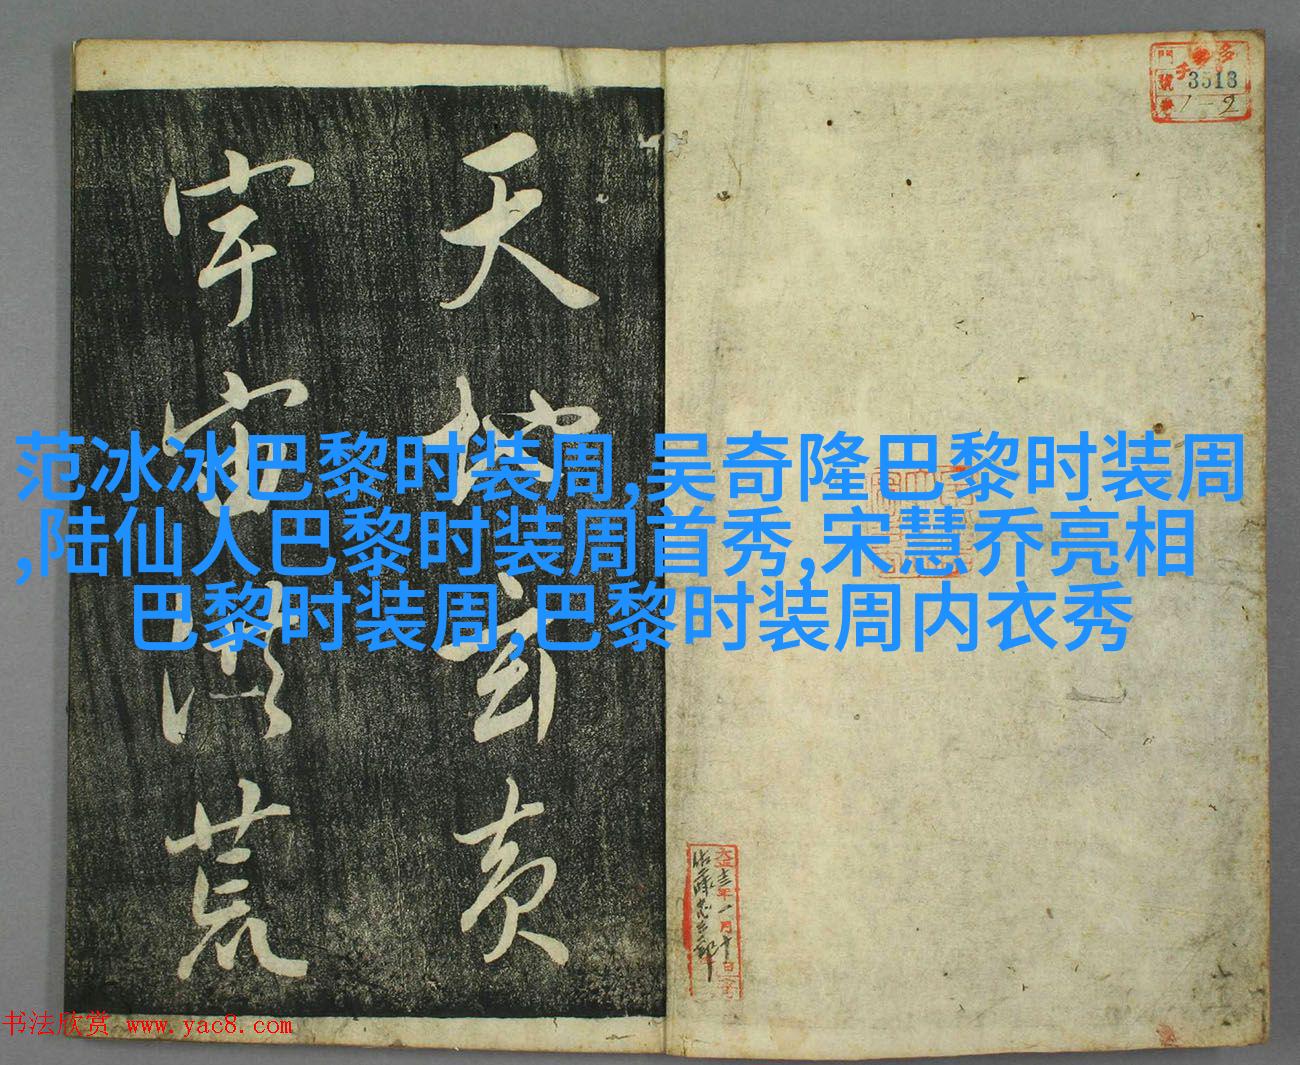 天地玄黄
宇宙洪荒
范冰冰巴黎时装周,吴奇隆巴黎时装周
,陆仙人巴黎时装周首秀,宋慧乔亮相
巴黎时装周,巴黎时装周内衣秀
3513
1-2
大正十三年一月十日
书法欣赏 www.yac8.com